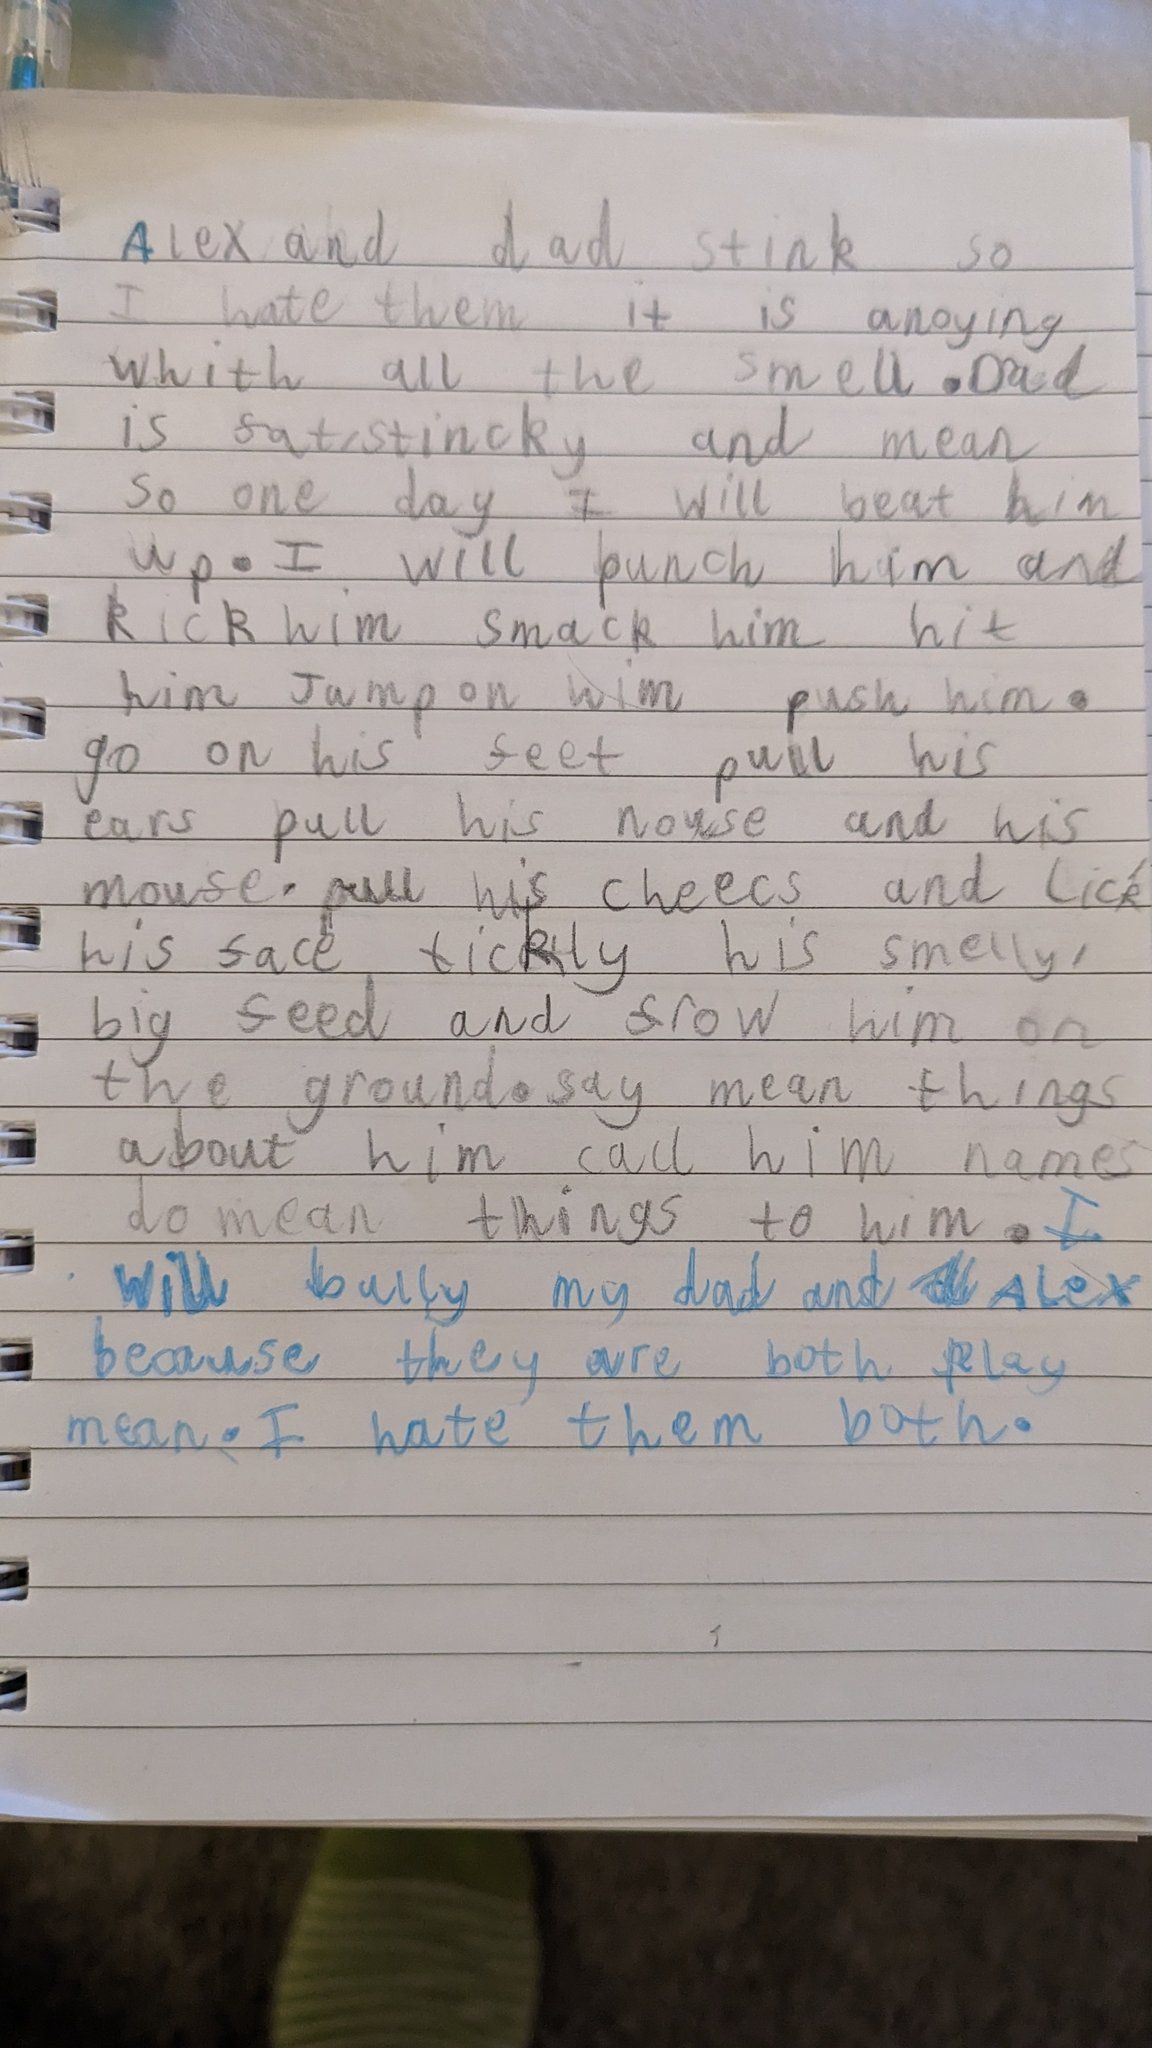 Alex and dad stink so
I hate them it is anoying
whith all the smell. Dad
is fat, stincky and mean
so one day I will beat him
up. I will punch him and
kick him smack him hit
him Jump on him push him.
go on his feet pull his
ears pull his nouse and his
mouse. pull his cheecs and Lick
his face tickly his smelly,
big feed and frow him on
the ground. say mean things
about him call him names
do mean things to him. I
will bully my dad and Alex
because they are both play
mean. I hate them both.